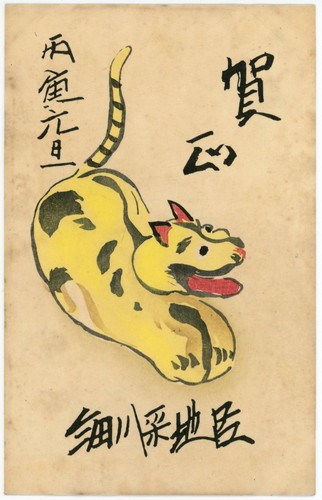 賀正
丙寅元旦
細川采地臣